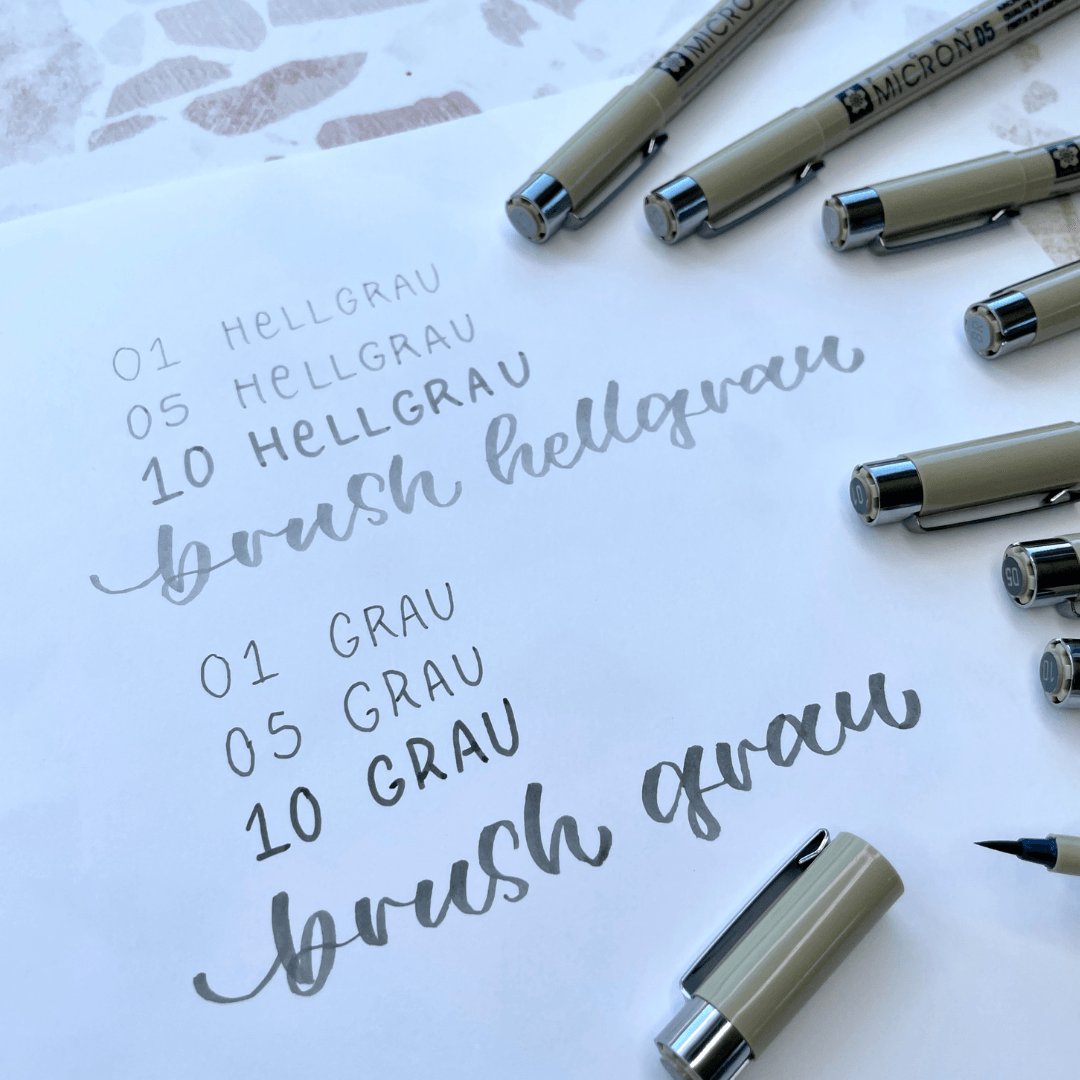 MICRON
MICRON 05
01 HeLLGRAU
05 HeLLGRAU
10 HeLLGRAU
brush hellgrau
01 GRAU
05 GRAU
10 GRAU
brush grau
BR
01
05
10